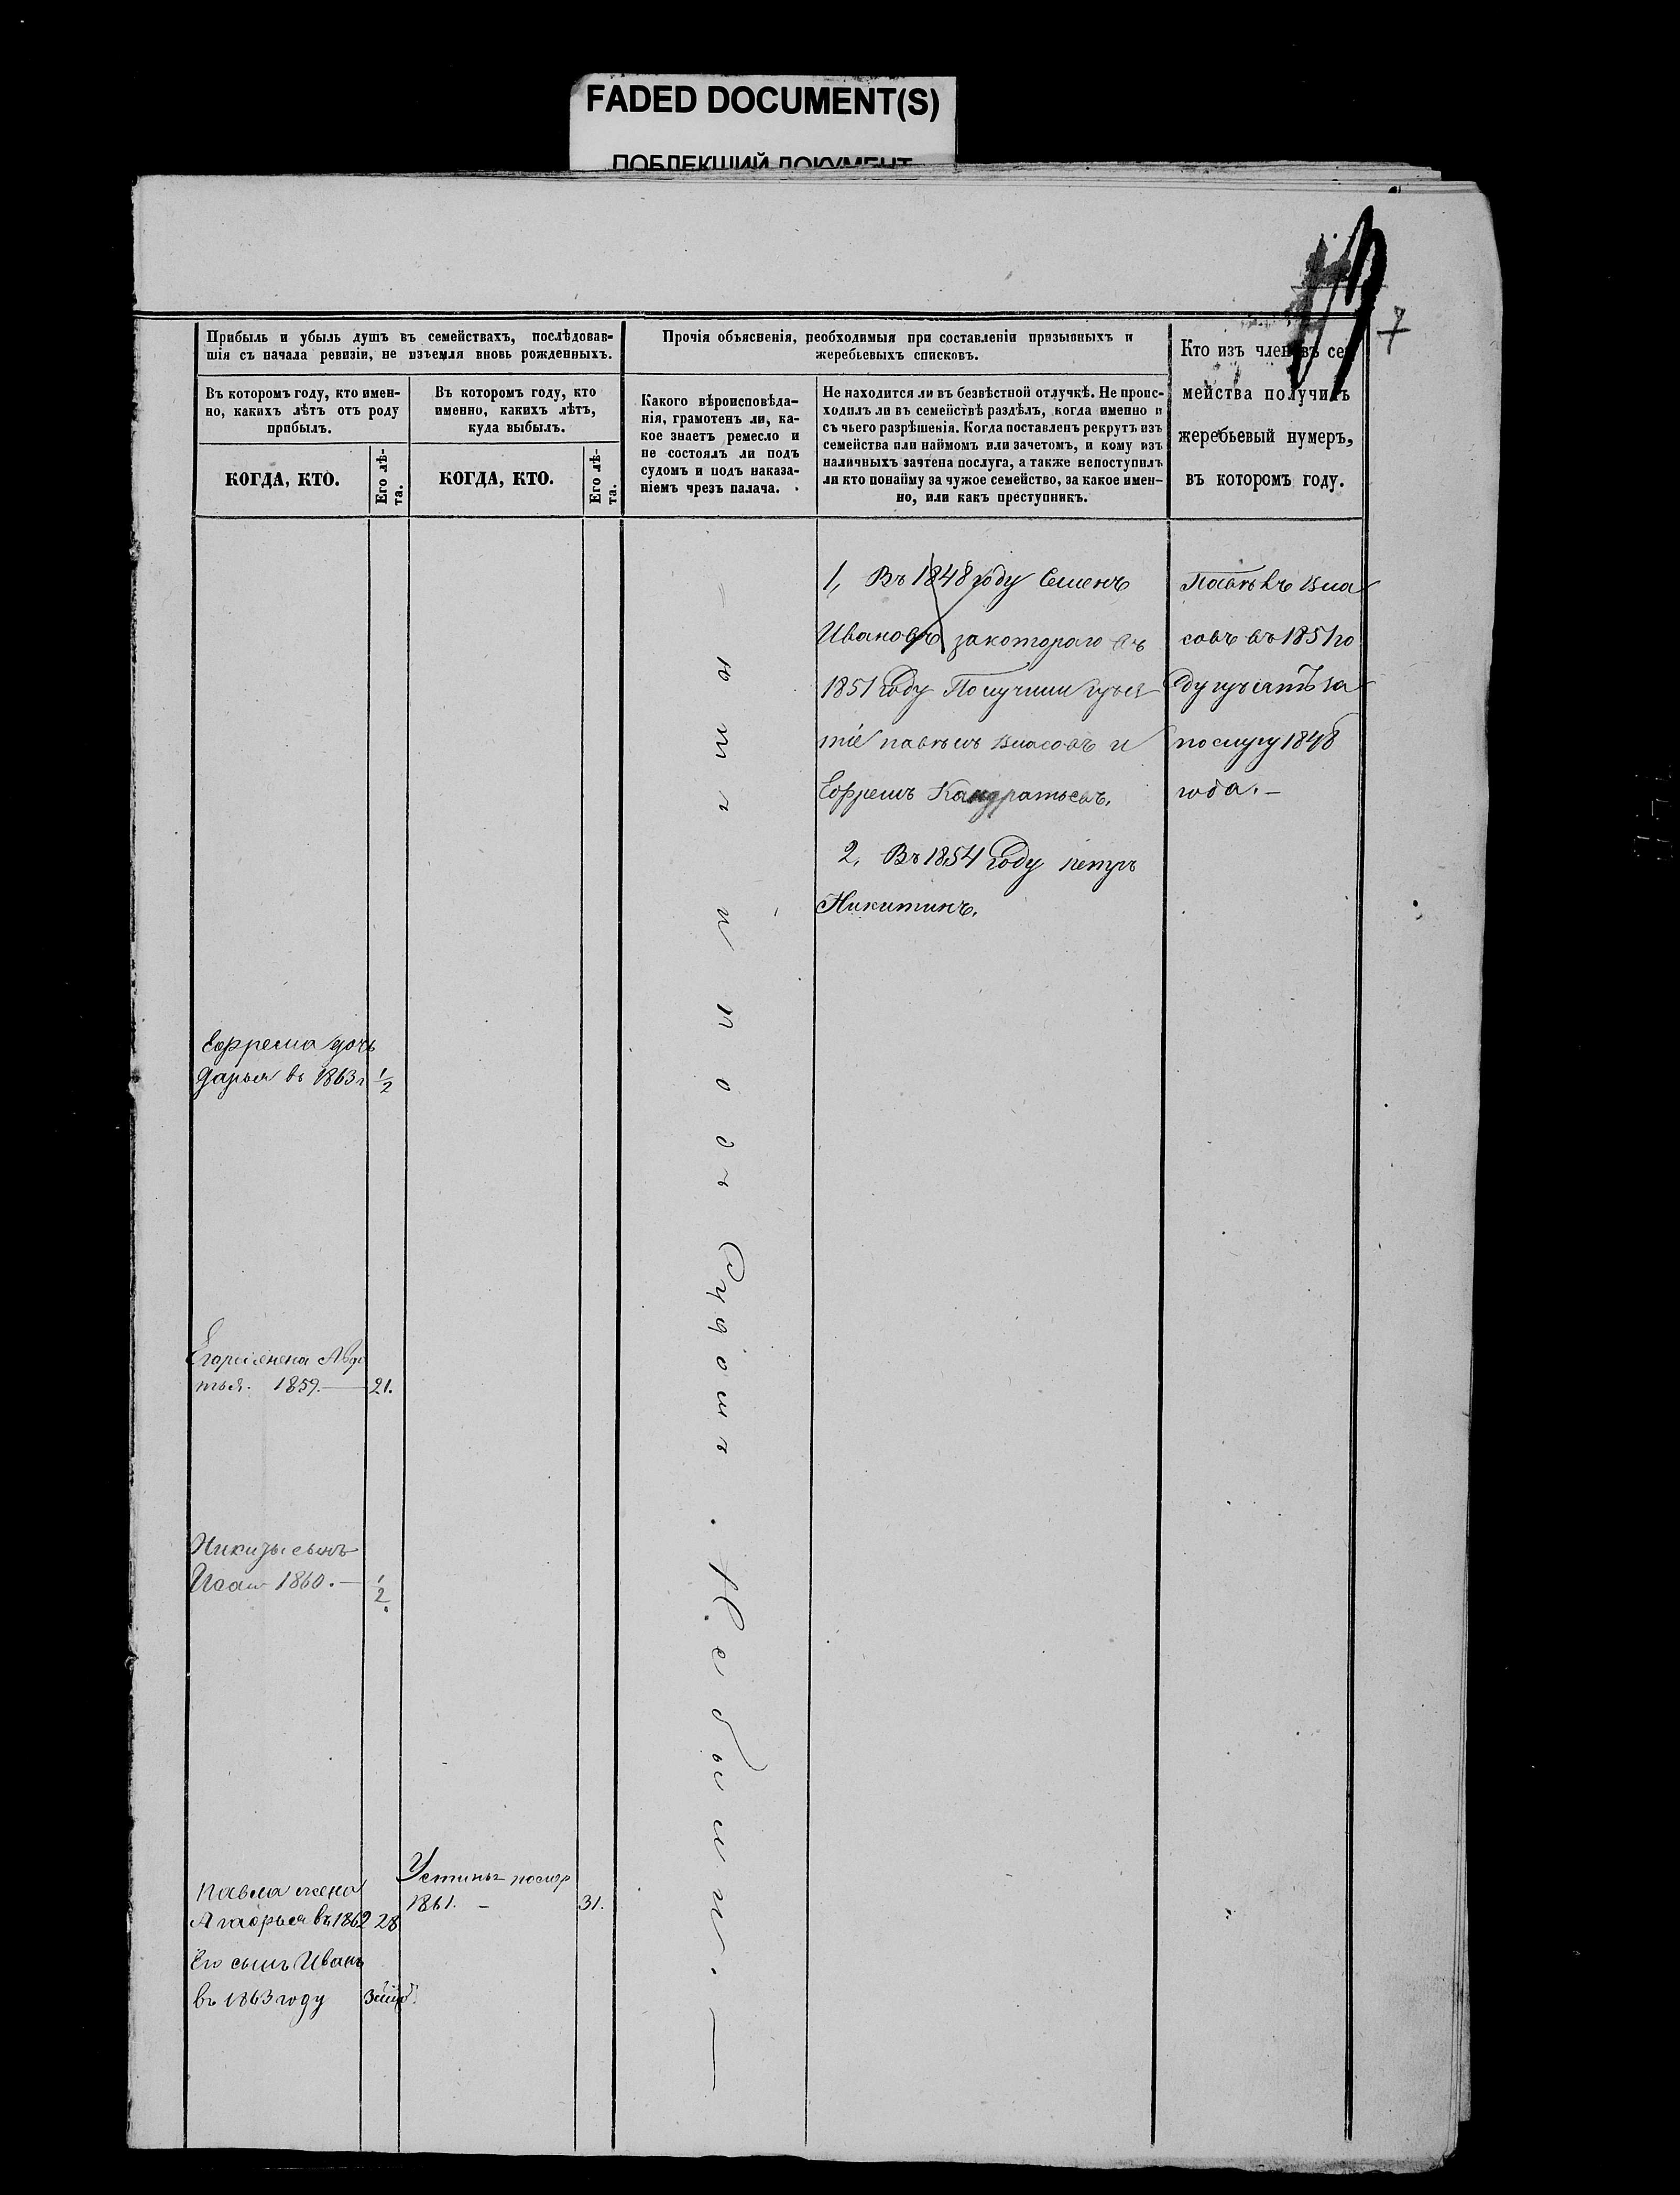 FADED DOCUMENT(S)
ПОБЛЕКШИЙ ДОКУМЕНТ
7
Прибыль и убыль душъ въ семействахъ, послѣдовав-
шія съ начала ревизіи, не изъемля вновь рожденныхъ.
Прочія объясненія, необходимыя при составленіи призывныхъ и
жеребьевыхъ списковъ.
Кто изъ членовъ се-
мейства получилъ
жеребьевый нумеръ,
въ которомъ году.
Въ которомъ году, кто имен-
но, какихъ лѣтъ отъ роду
прибылъ.
Въ которомъ году, кто
именно, какихъ лѣтъ,
куда выбылъ.
Какого вѣроисповѣда-
нія, грамотенъ ли, ка-
кое знаетъ ремесло и
не состоялъ ли подъ
судомъ и подъ наказа-
ніемъ чрезъ палача.
Не находится ли въ безвѣстной отлучкѣ. Не проис-
ходилъ ли въ семействѣ раздѣлъ, когда именно и
съ чьего разрѣшенія. Когда поставленъ рекрутъ изъ
семейства или наймомъ или зачетомъ, и кому изъ
наличныхъ зачтена послуга, а также непоступилъ
ли кто понайму за чужое семейство, за какое имен-
но, или какъ преступникъ.
КОГДА, КТО.
Его лѣ-
та.
КОГДА, КТО.
Его лѣ-
та.
1, Въ 1848 году Семенъ
Ивановъ закотораго въ
1851 году Получили
тіе павелъ Власовъ и
Ефремъ Кандратьевъ.
2, Въ 1854 году петръ
Никитинъ.
Павелъ Вла
совъ въ 1851 го
ду за
послугу 1848
года. –
подъ Судомъ. Небыли. —
Ефрема дочь
Дарья въ 1863 г 1/2
Егора жена Авдо
тья. 1859. — 21.
Никиты сынъ
1860. — 1/2
Павла жена
Агафья въ 1862 28
Его сынъ Иванъ
въ 1863 году
Устинья
1861. – 31.